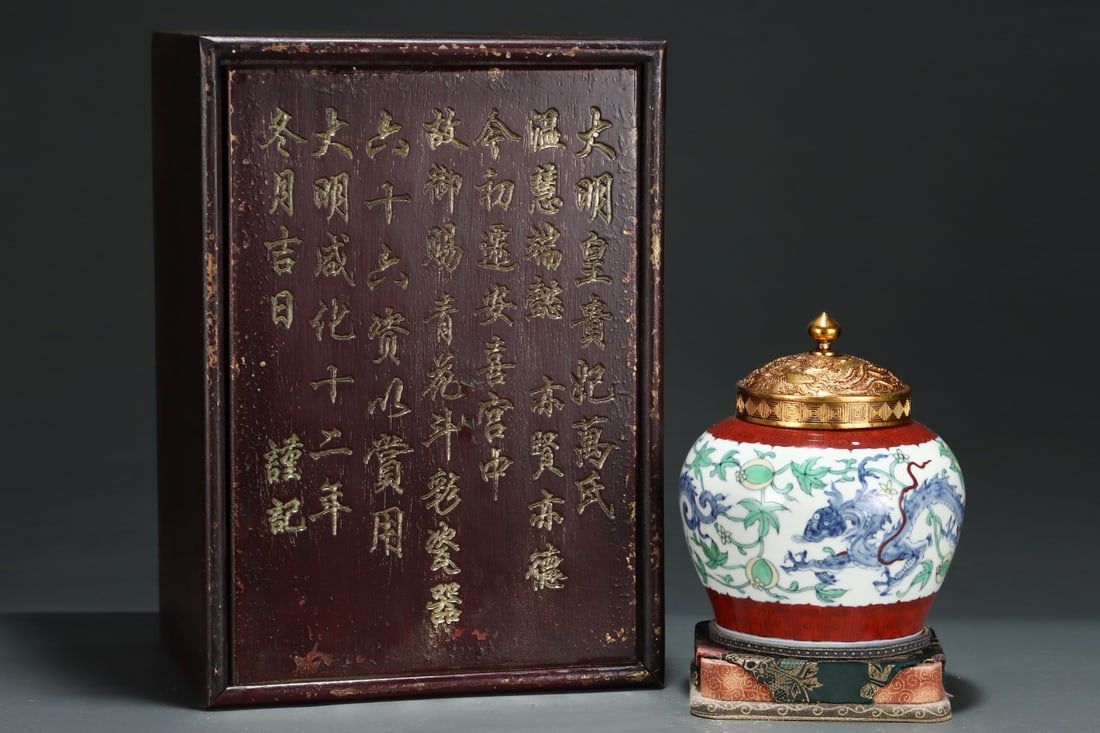 大明皇貴妃萬氏
温慧端懿 亦賢亦德
今初遷安喜宮中
故御賜青花斗彩瓷器
六十六资以賞用
大明成化十二年
冬月吉日 謹記